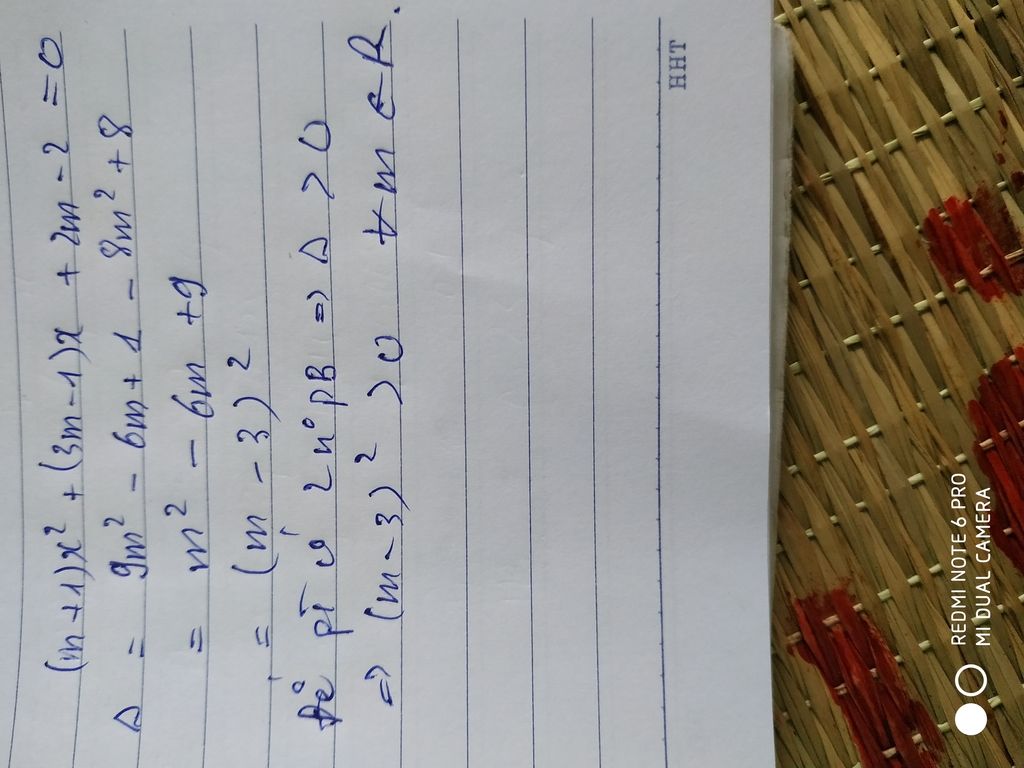 (m+1)x² + (3m-1)x + 2m - 2 = 0
Δ = 9m² - 6m + 1 - 8m² + 8
= m² - 6m + 9
= (m - 3)²
Để pT có 2 n° pB => Δ > 0
=> (m-3)² > 0 ∀m ∈ R.
HHT
REDMI NOTE 6 PRO
MI DUAL CAMERA